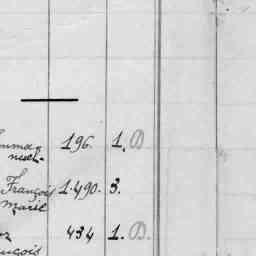 196. 1. D
François 1.490. 3.
Marie
434 1. D.
nçois